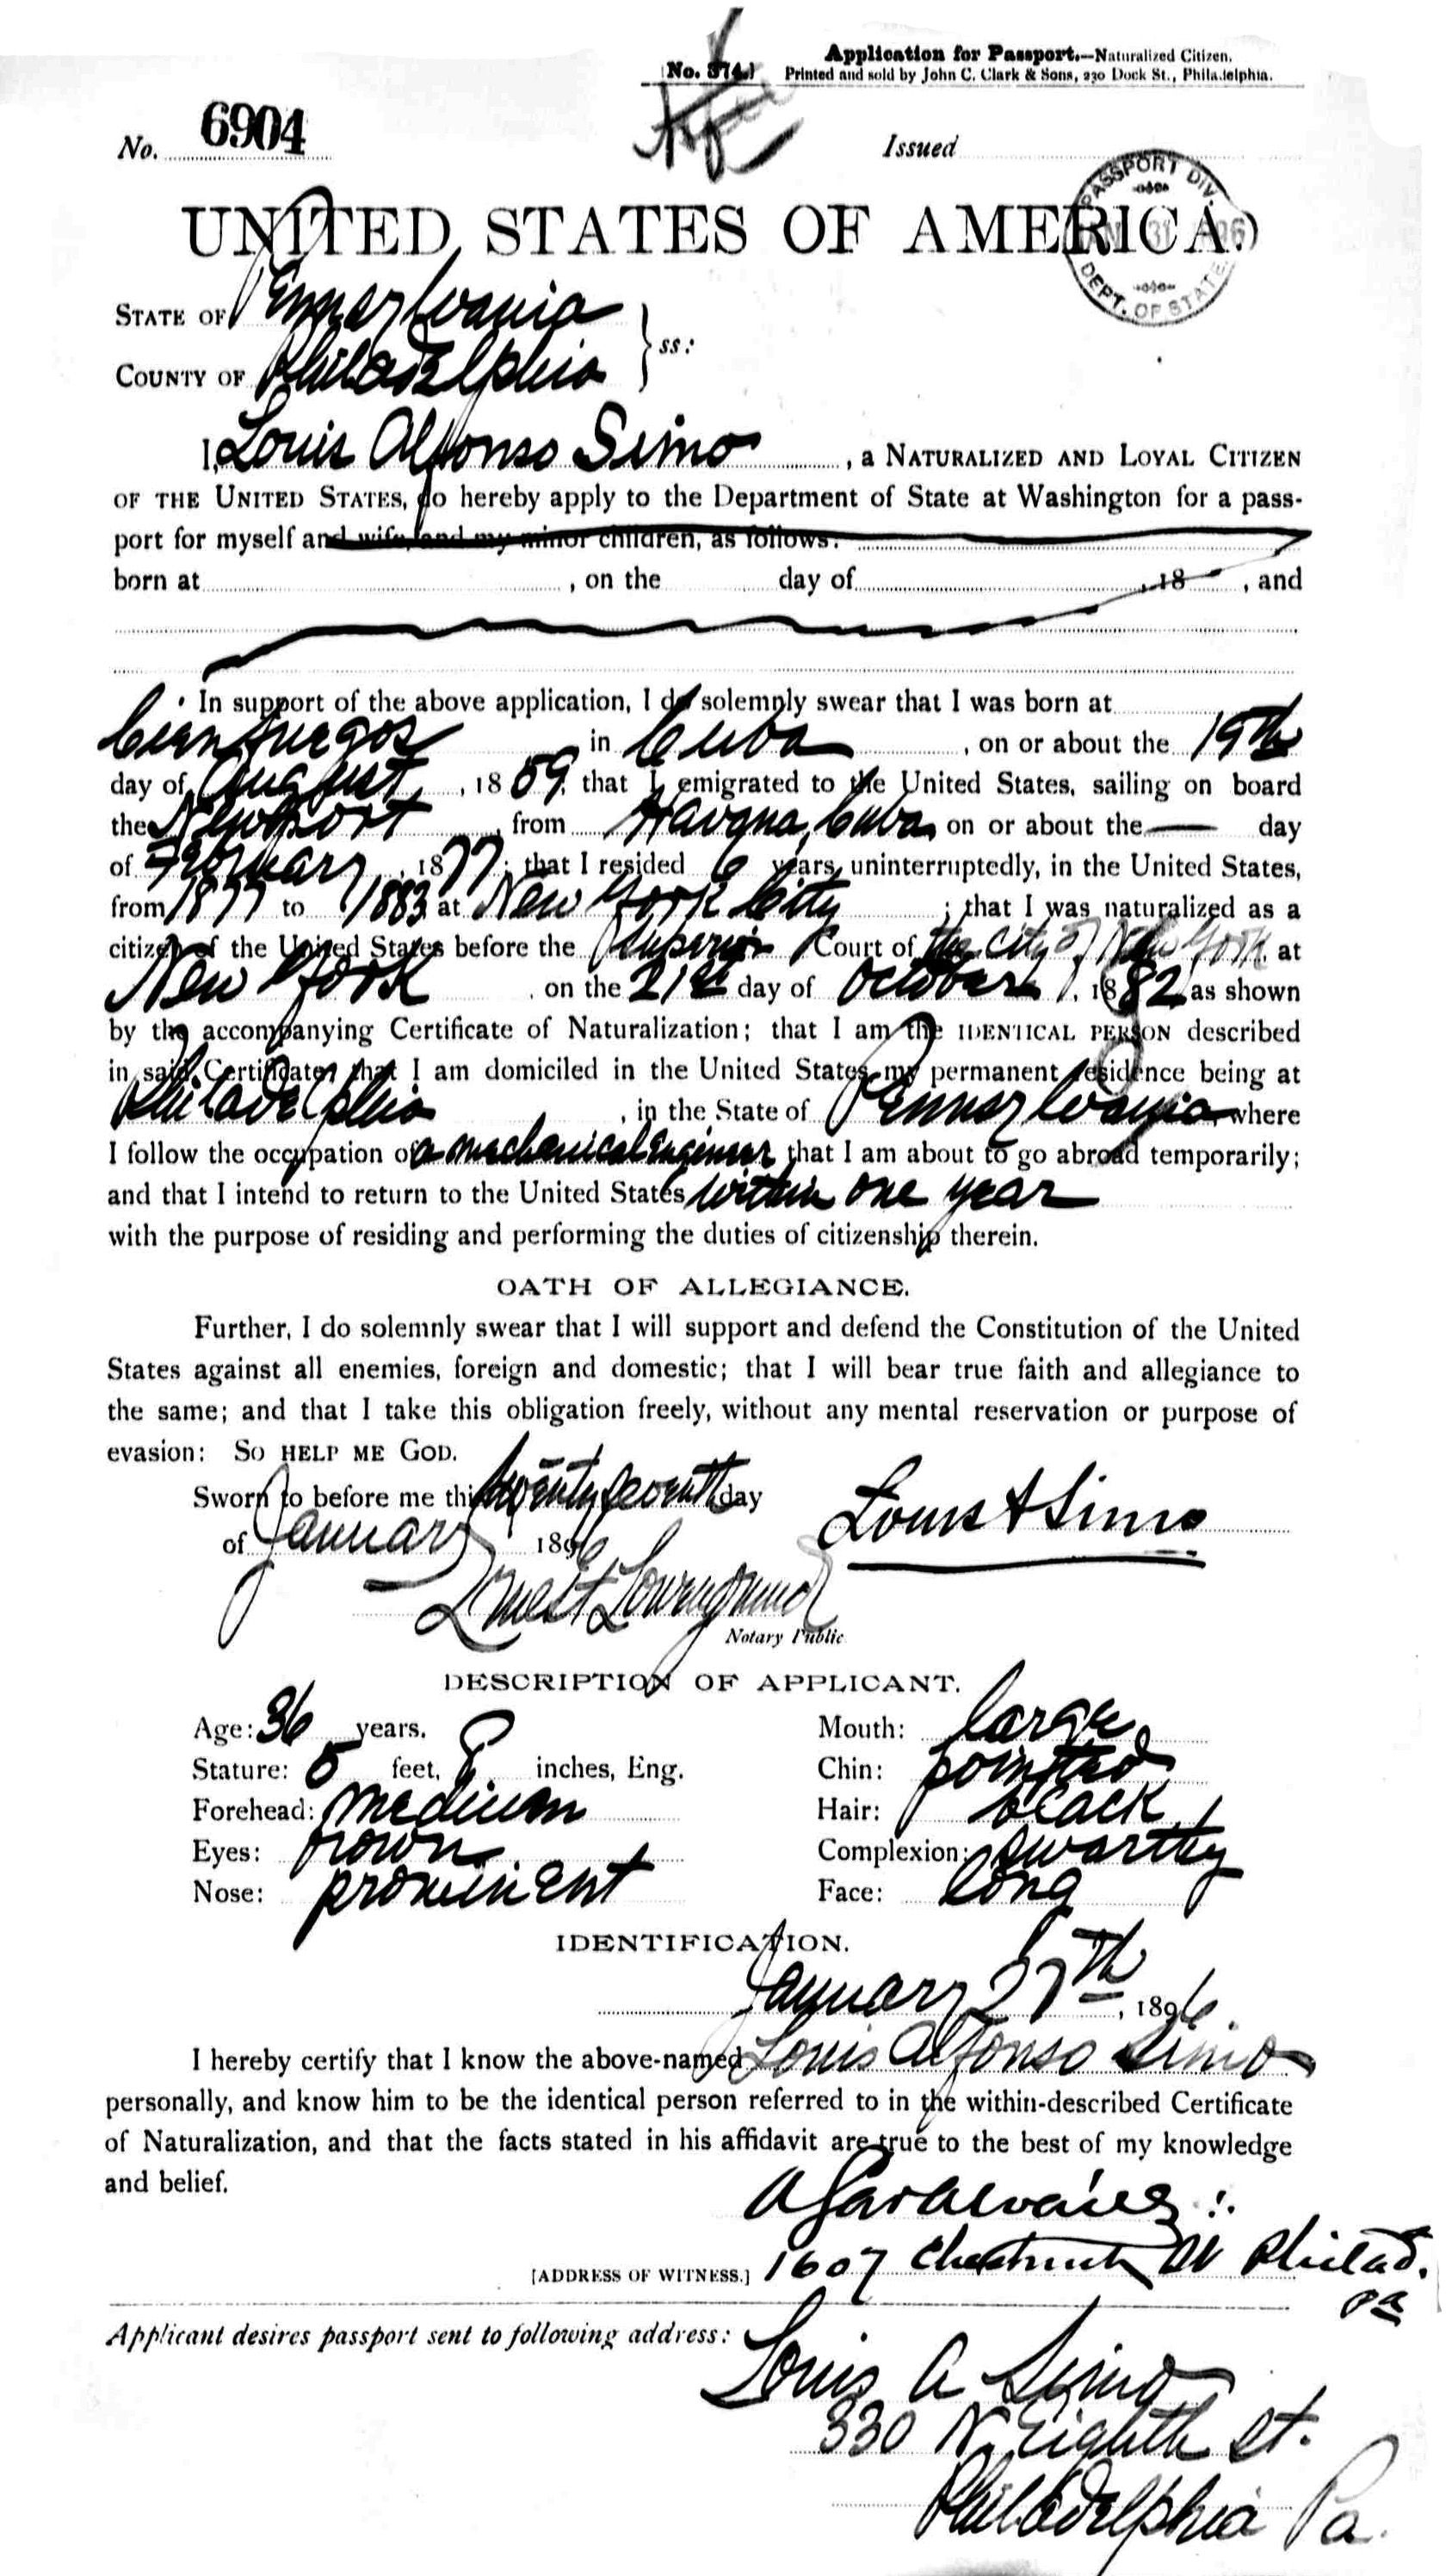 Application for Passport.—Naturalized Citizen.
[No. 374.] Printed and sold by John C. Clark & Sons, 230 Dock St., Philadelphia.
No. 6904 Issued
PASSPORT DIV.
JAN 31 1896
DEPT. OF STATE
UNITED STATES OF AMERICA.
STATE OF Pennsylvania
COUNTY OF Philadelphia } ss:
I, Louis Alfonso Simo, a NATURALIZED AND LOYAL CITIZEN
OF THE UNITED STATES, do hereby apply to the Department of State at Washington for a pass-
port for myself and wife, and my minor children, as follows:
born at , on the day of , 18 , and
In support of the above application, I do solemnly swear that I was born at
Cienfuegos in Cuba, on or about the 19th
day of August, 1859; that I emigrated to the United States, sailing on board
the Newport, from Havana, Cuba, on or about the — day
of February, 1877; that I resided 6 years, uninterruptedly, in the United States,
from 1877 to 1883 at New York City; that I was naturalized as a
citizen of the United States before the Superior Court of the City of New York, at
New York, on the 21st day of October, 1882 as shown
by the accompanying Certificate of Naturalization; that I am the IDENTICAL PERSON described
in said Certificate; that I am domiciled in the United States, my permanent residence being at
Philadelphia, in the State of Pennsylvania, where
I follow the occupation of a mechanical Engineer that I am about to go abroad temporarily;
and that I intend to return to the United States within one year
with the purpose of residing and performing the duties of citizenship therein.
OATH OF ALLEGIANCE.
Further, I do solemnly swear that I will support and defend the Constitution of the United
States against all enemies, foreign and domestic; that I will bear true faith and allegiance to
the same; and that I take this obligation freely, without any mental reservation or purpose of
evasion: SO HELP ME GOD.
Sworn to before me this twenty seventh day Louis A Simo
of January 1896
Ernest
Notary Public
DESCRIPTION OF APPLICANT.
Age: 36 years. Mouth: large
Stature: 5 feet, 8 inches, Eng. Chin: pointed
Forehead: medium Hair: black
Eyes: brown Complexion: swarthy
Nose: prominent Face: long
IDENTIFICATION.
January 27th, 1896.
I hereby certify that I know the above-named Louis Alfonso Simo
personally, and know him to be the identical person referred to in the within-described Certificate
of Naturalization, and that the facts stated in his affidavit are true to the best of my knowledge
and belief.
[ADDRESS OF WITNESS.] 1607 Chestnut St Philad.
Pa
Applicant desires passport sent to following address:
Louis A Simo
330 N. Eighth St.
Philadelphia Pa.